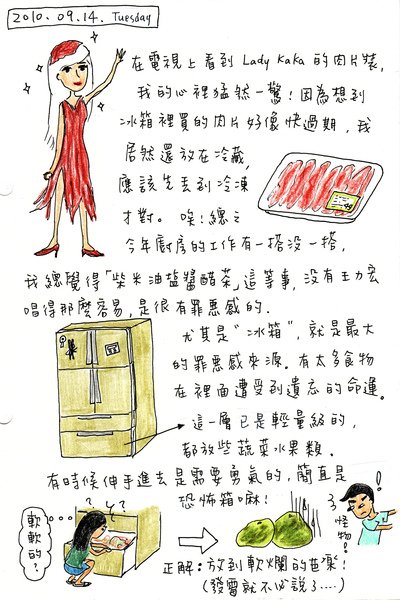 2010.09.14. Tuesday
在電視上看到 Lady KaKa 的肉片裝,
我的心裡猛然一驚！因為想到
冰箱裡買的肉片好像快過期, 我
居然還放在冷藏,
應該先丟到冷凍
才對。 唉！總之
今年廚房的工作有一搭沒一搭,
我總覺得「柴米油鹽醬醋茶」這等事, 沒有王力宏
唱得那麼容易, 是很有罪惡感的.
尤其是“冰箱”, 就是最大
的罪惡感來源。有太多食物
在裡面遭受到遺忘的命運。
這一層已是輕量級的,
都放些蔬菜水果類.
有時候伸手進去是需要勇氣的, 簡直是
恐怖箱嘛！
軟軟的？
? ?
怪物!
!
正解: 放到軟爛的芭樂！
(發霉就不必說了....)